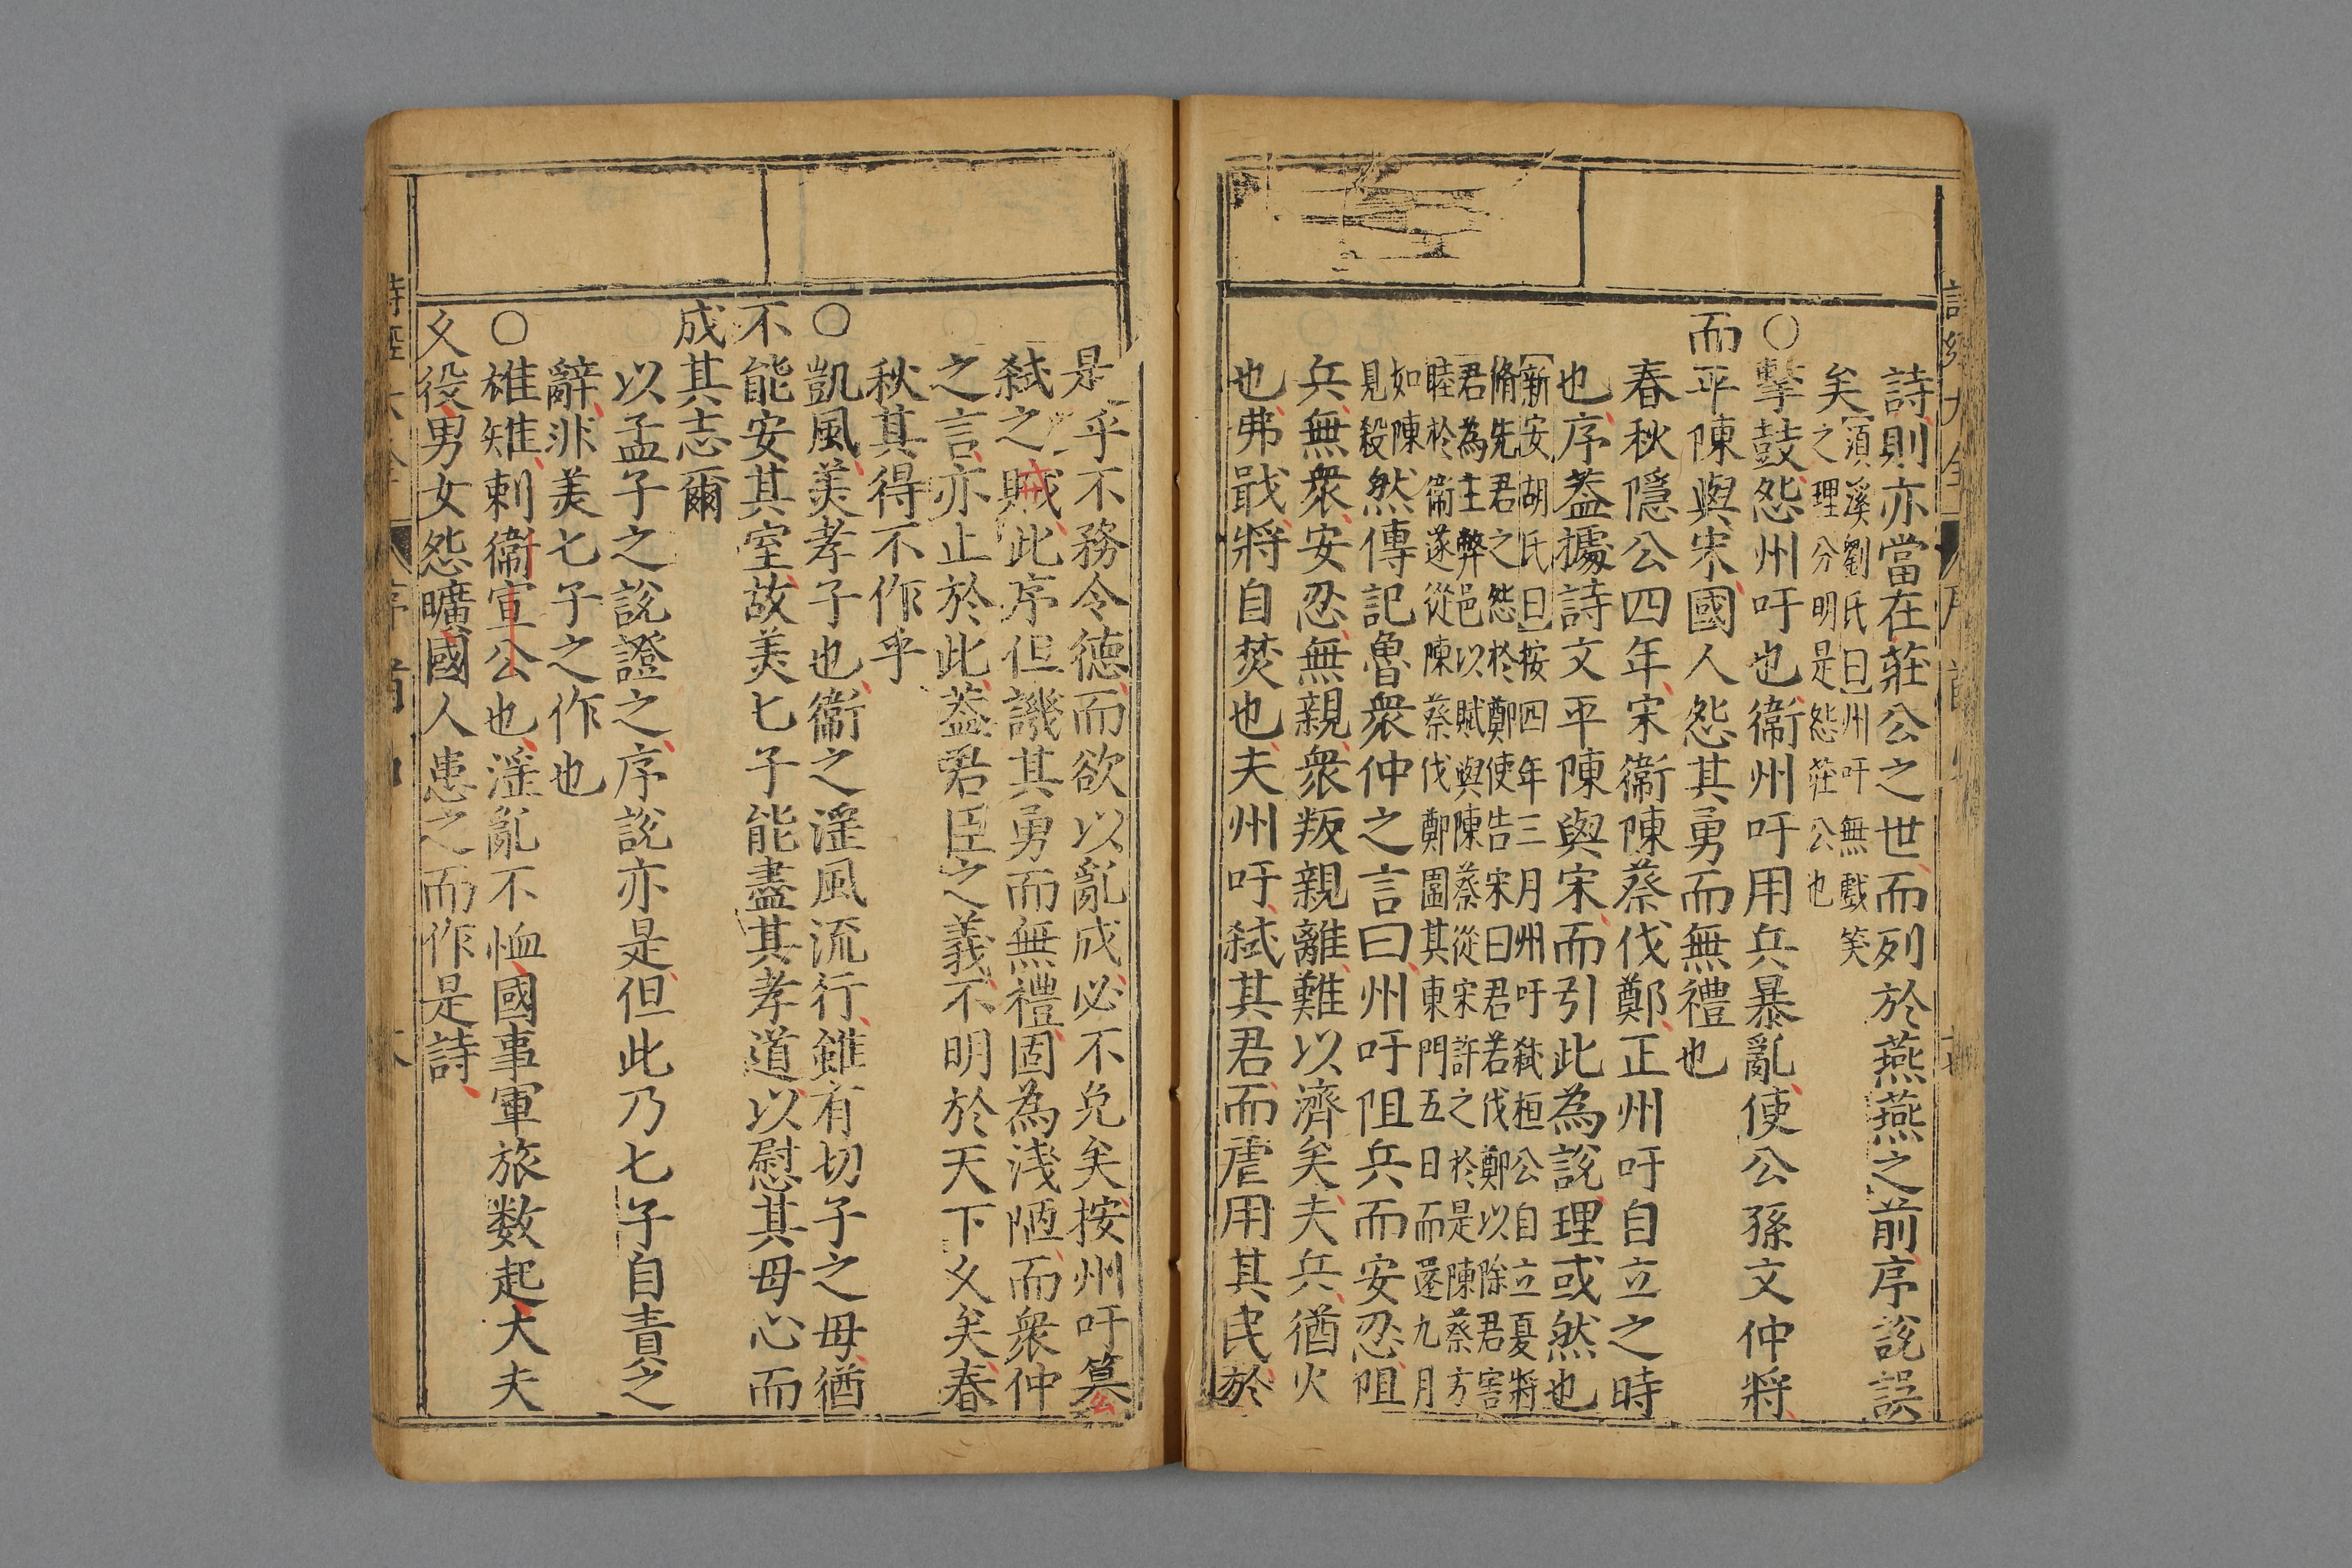 詩則亦當在莊公之世而列於燕燕之前序說誤
矣
須溪劉氏曰州吁無戲笑
之理分明是怨莊公也
○擊鼓怨州吁也衞州吁用兵暴亂使公孫文仲將
而平陳與宋國人怨其勇而無禮也
春秋隱公四年宋衞陳蔡伐鄭正州吁自立之時
也序蓋據詩文平陳與宋而引此為說理或然也
新安胡氏曰按四年三月州吁弑桓公自立夏將
脩先君之怨於鄭使告宋曰君若伐鄭以除君害
君為主弊邑以賦與陳蔡從宋許之於是陳蔡方
睦於衞遂從陳蔡伐鄭圍其東門五日而還九月
如陳
見殺
然傳記魯衆仲之言曰州吁阻兵而安忍阻
兵無衆安忍無親衆叛親離難以濟矣夫兵猶火
也弗戢將自焚也夫州吁弑其君而虐用其民於
是乎不務令德而欲以亂成必不免矣按州吁簒
弑之賊此序但譏其勇而無禮固為淺陋而衆仲
之言亦止於此蓋君臣之義不明於天下久矣春
秋其得不作乎
○凱風美孝子也衞之淫風流行雖有七子之母猶
不能安其室故美七子能盡其孝道以慰其母心而
成其志爾
以孟子之說證之序說亦是但此乃七子自責之
辭非美七子之作也
○雄雉刺衞宣公也淫亂不恤國事軍旅数起大夫
久役男女怨曠國人患之而作是詩